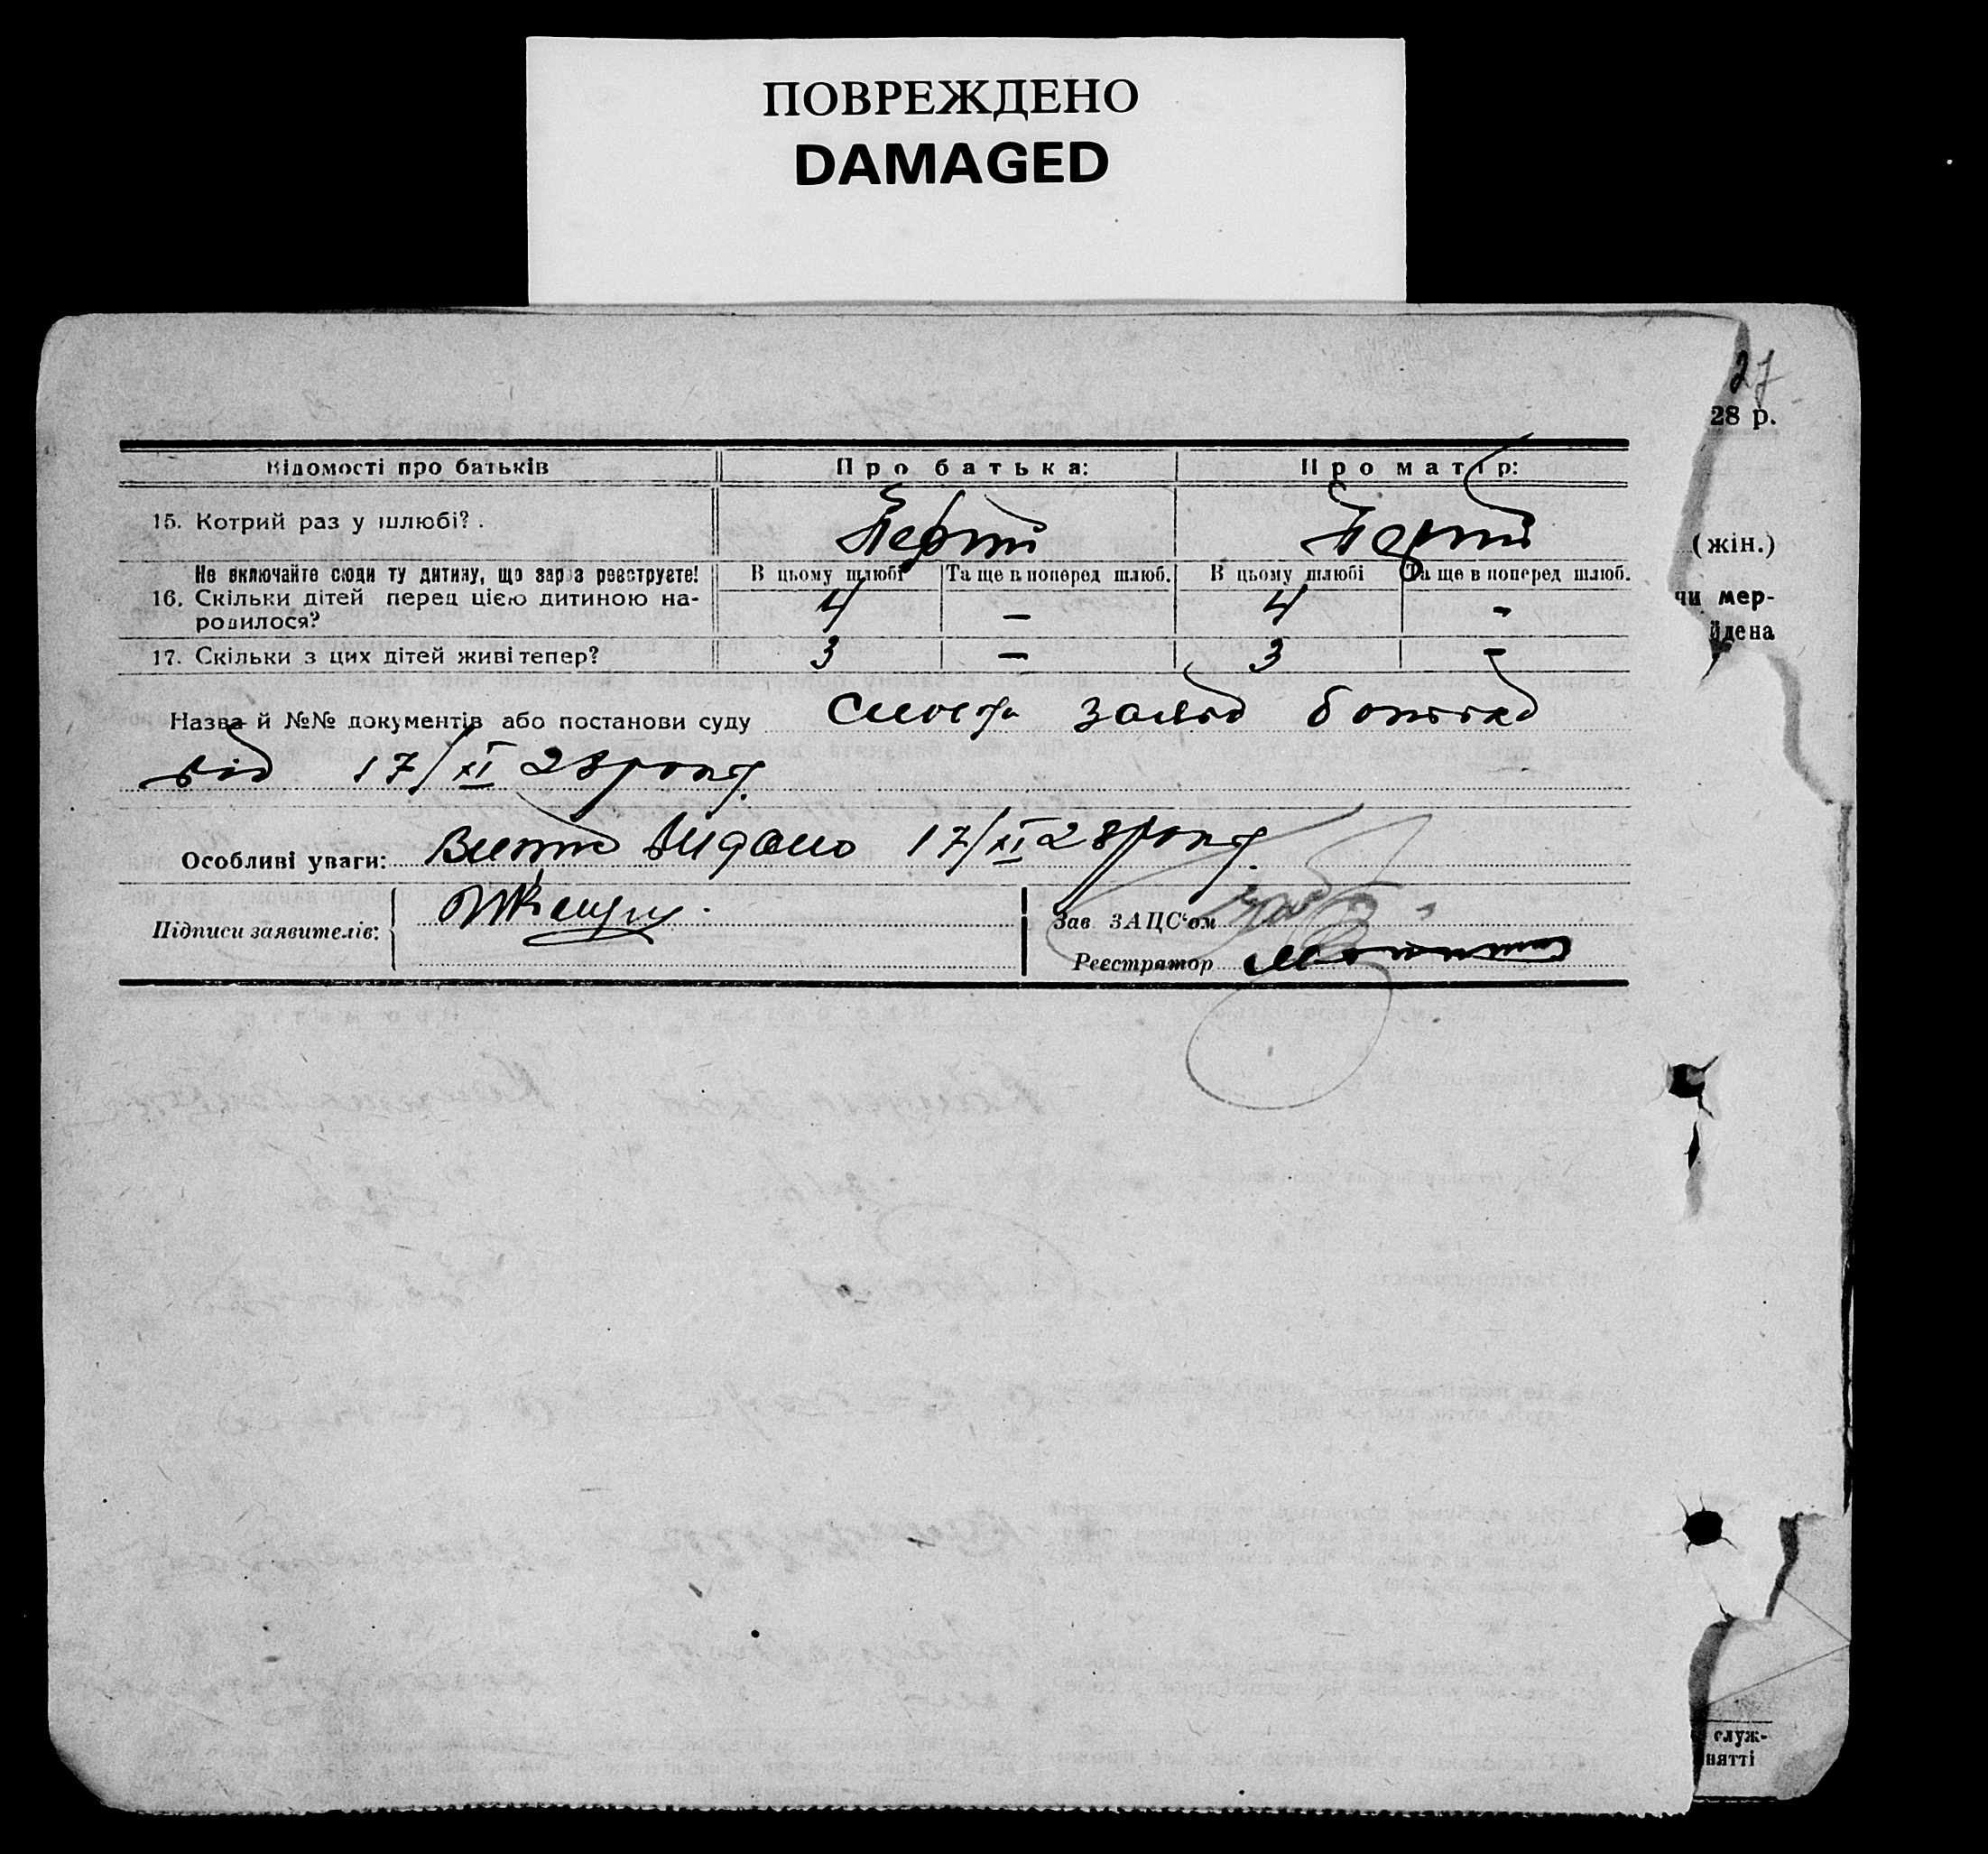 ПОВРЕЖДЕНО
DAMAGED
27
28 р.
Відомості про батьків Про батька: Про матір:
15. Котрий раз у шлюбі? . Перший Перший
(жін.)
Не включайте сюди ту дитину, що зараз реєструєте! В цьому шлюбі Та ще в поперед шлюб. В цьому шлюбі Та ще в поперед шлюб.
16. Скільки дітей перед цією дитиною на- 4 – 4 -
родилося?
чи мер-
йдена
17. Скільки з цих дітей живі тепер? 3 – 3 -
Назва й №№ документів або постанови суду заява батька
від 17/XI 28 року.
Особливі уваги: Видано 17/XI 28 року.
Підписи заявителів: Зав ЗАЦС‘ом
Реєстратор
служ-
нятті